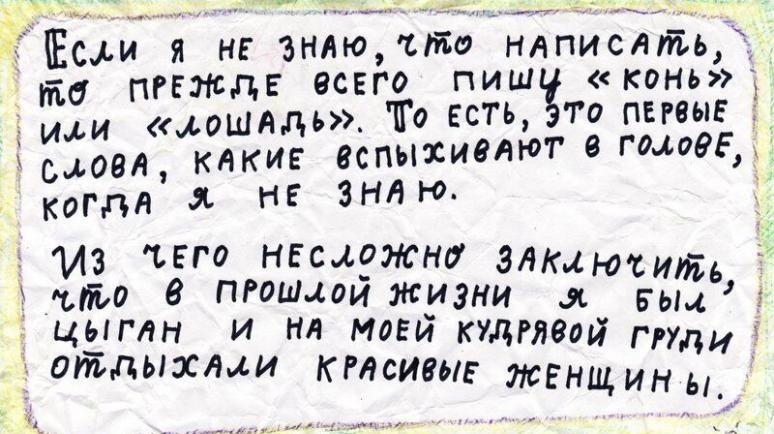 Если я не знаю, что написать,
то прежде всего пишу «конь»
или «лошадь». То есть, это первые
слова, какие вспыхивают в голове,
когда я не знаю.
Из чего несложно заключить,
что в прошлой жизни я был
цыган и на моей кудрявой груди
отдыхали красивые женщины.